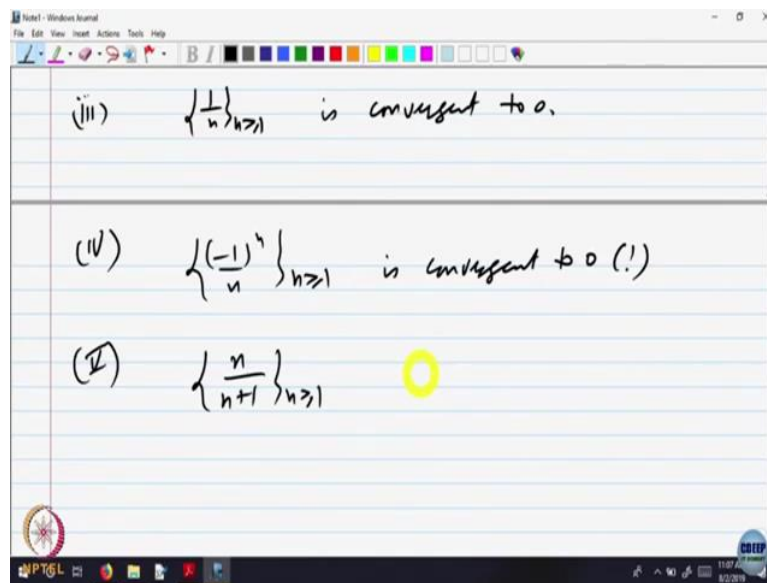 Note1 - Windows Journal
File Edit View Insert Actions Tools Help
B I
(iii) {1/n}n≥1 is convergent to 0.
(IV) {(-1)^n/n}n≥1 is convergent to 0 (!)
(V) {n/n+1}n≥1
NPTEL
CDEEP
8/2/2019